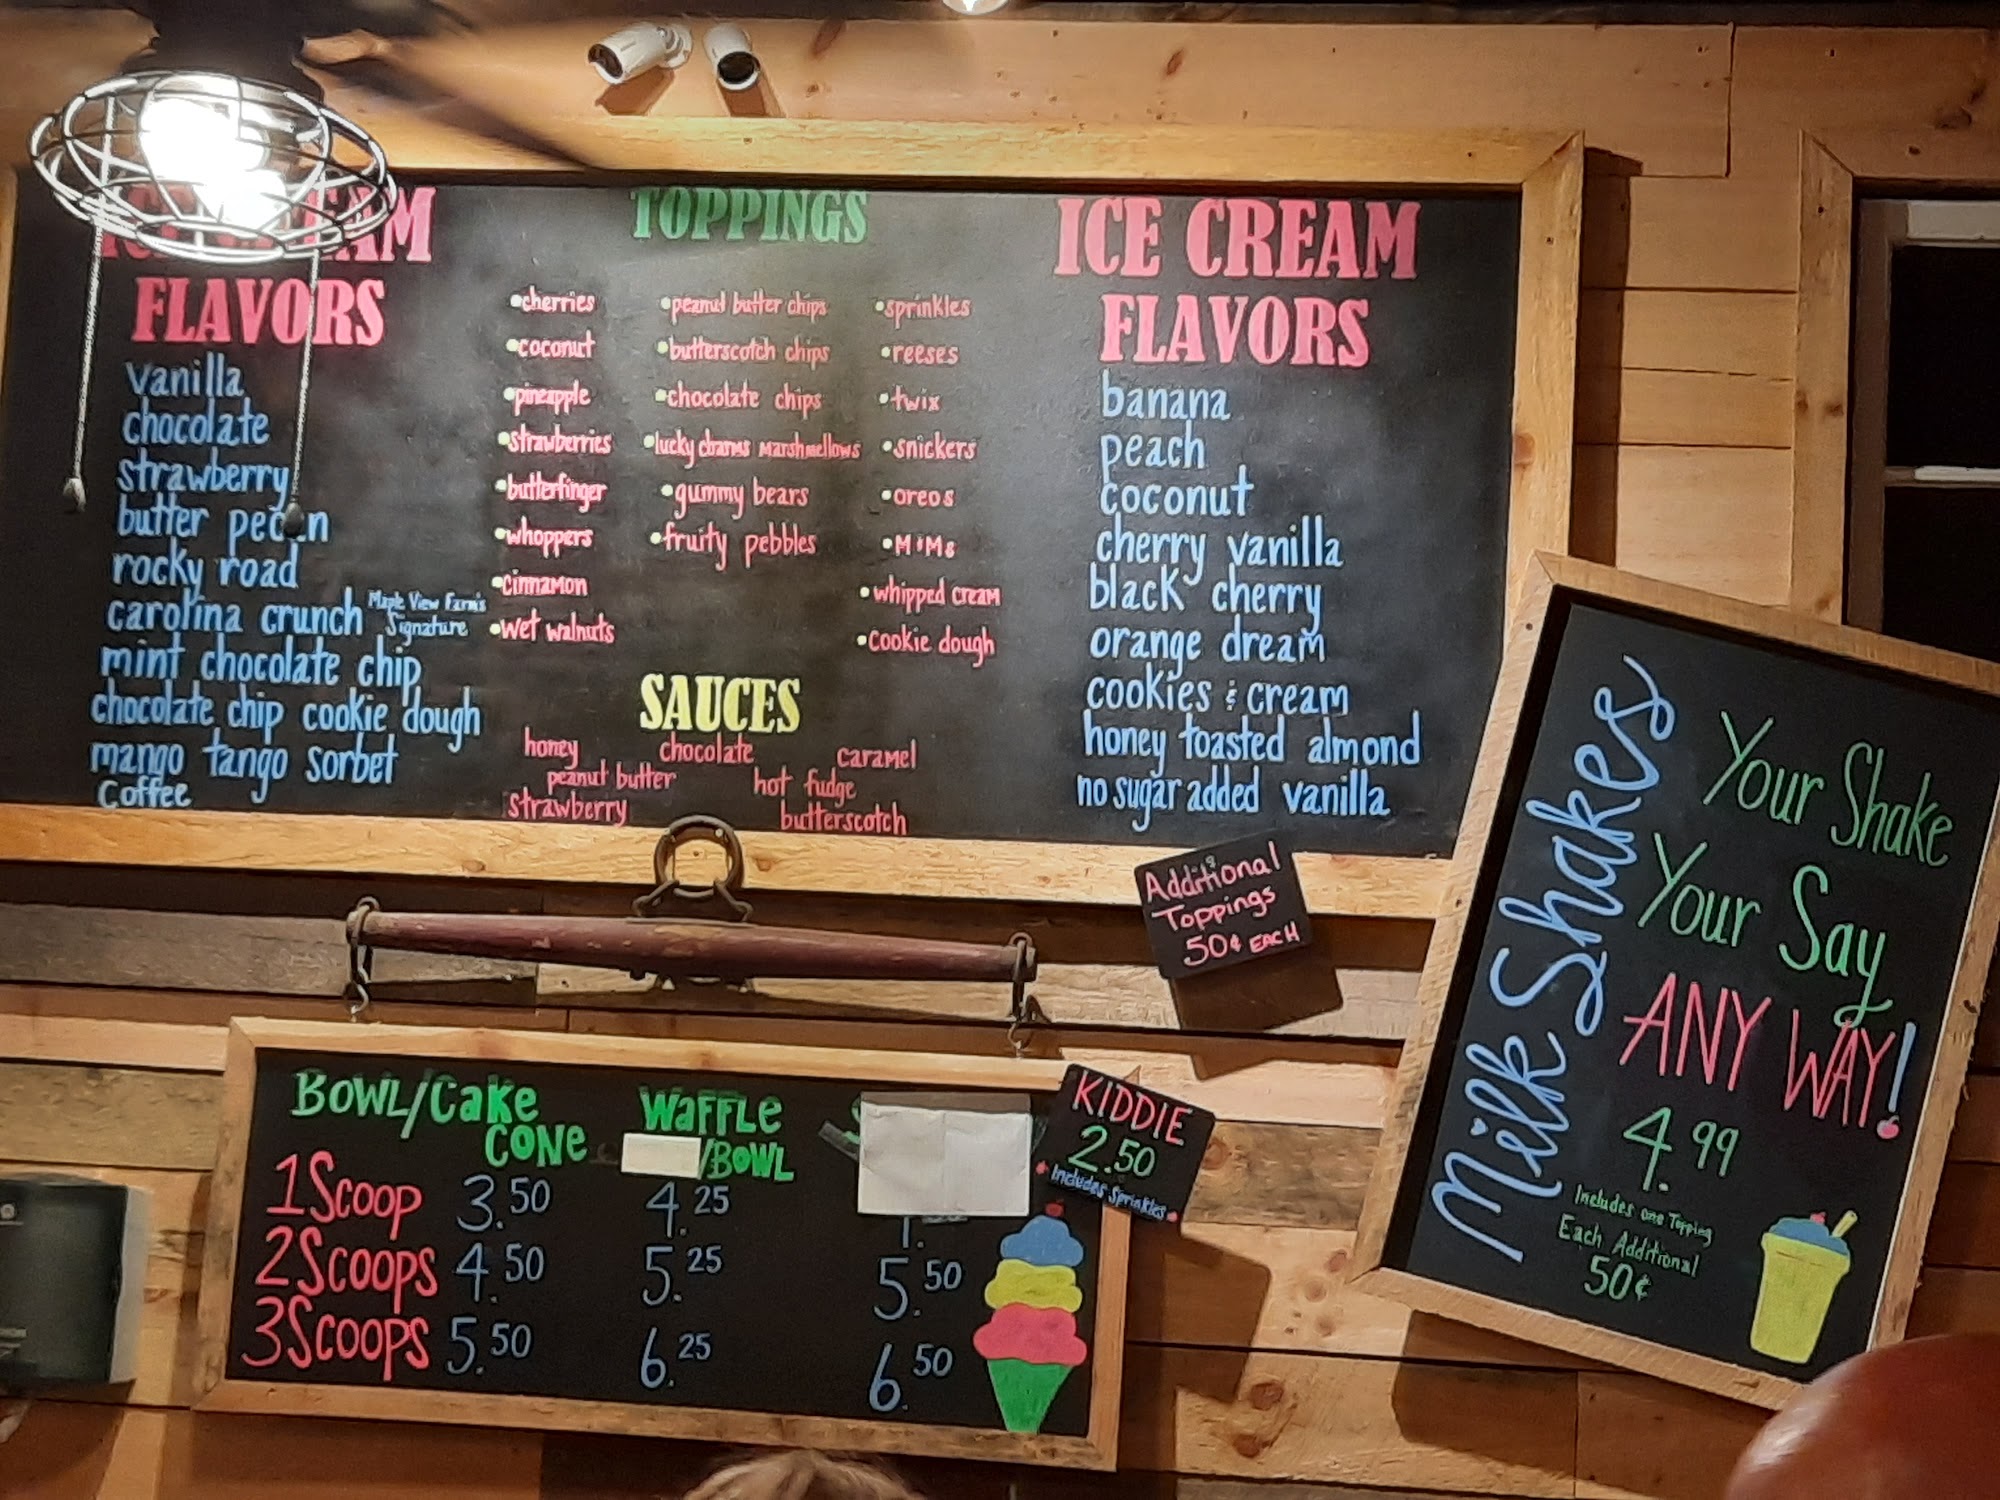 ICE CREAM
FLAVORS
vanilla
chocolate
strawberry
butter pecan
rocky road
carolina crunch Maple View Farm's Signature
mint chocolate chip
chocolate chip cookie dough
mango tango sorbet
Coffee
TOPPINGS
•cherries
•coconut
•pineapple
•strawberries
•butterfinger
•whoppers
•cinnamon
•wet walnuts
•peanut butter chips
•butterscotch chips
•chocolate chips
•lucky charms marshmellows
•gummy bears
•fruity pebbles
•sprinkles
•reeses
•twix
•snickers
•oreos
•M&Ms
•whipped cream
•cookie dough
SAUCES
honey chocolate caramel
peanut butter hot fudge
strawberry butterscotch
ICE CREAM
FLAVORS
banana
peach
coconut
cherry vanilla
black cherry
orange dream
cookies & cream
honey toasted almond
no sugar added vanilla
Additional
Toppings
50¢ EACH
Milk Shakes
Your Shake
Your Say
ANY WAY!
4.99
Includes one Topping
Each Additional
50¢
BOWL/CAKE
CONE
WAFFLE
/BOWL
1 SCOOP 3.50 4.25
2 SCOOPS 4.50 5.25 5.50
3 SCOOPS 5.50 6.25 6.50
KIDDIE
2.50
Includes Sprinkles